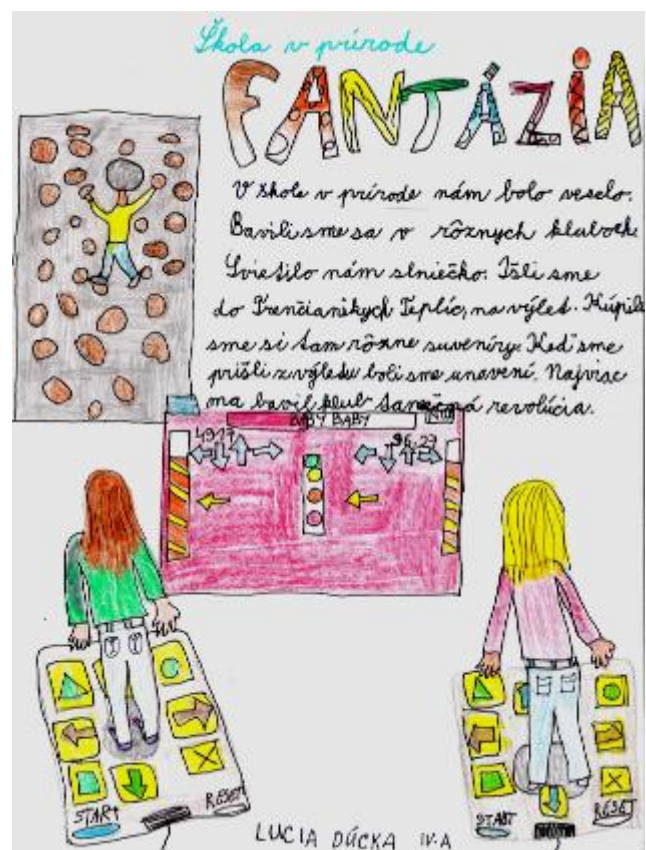 Škola v prírode
FANTÁZIA
V škole v prírode nám bolo veselo.
Bavili sme sa v rôznych kluboch.
Svietilo nám slniečko. Išli sme
do Trenčianských Teplíc, na výlet. Kúpili
sme si tam rôzne suveníry. Keď sme
prišli z výletu boli sme unavení. Najviac
ma bavil klub tanečná revolúcia.
BABY BABY
START
RESET
START
RESET
LUCIA DÚCKA IV.A